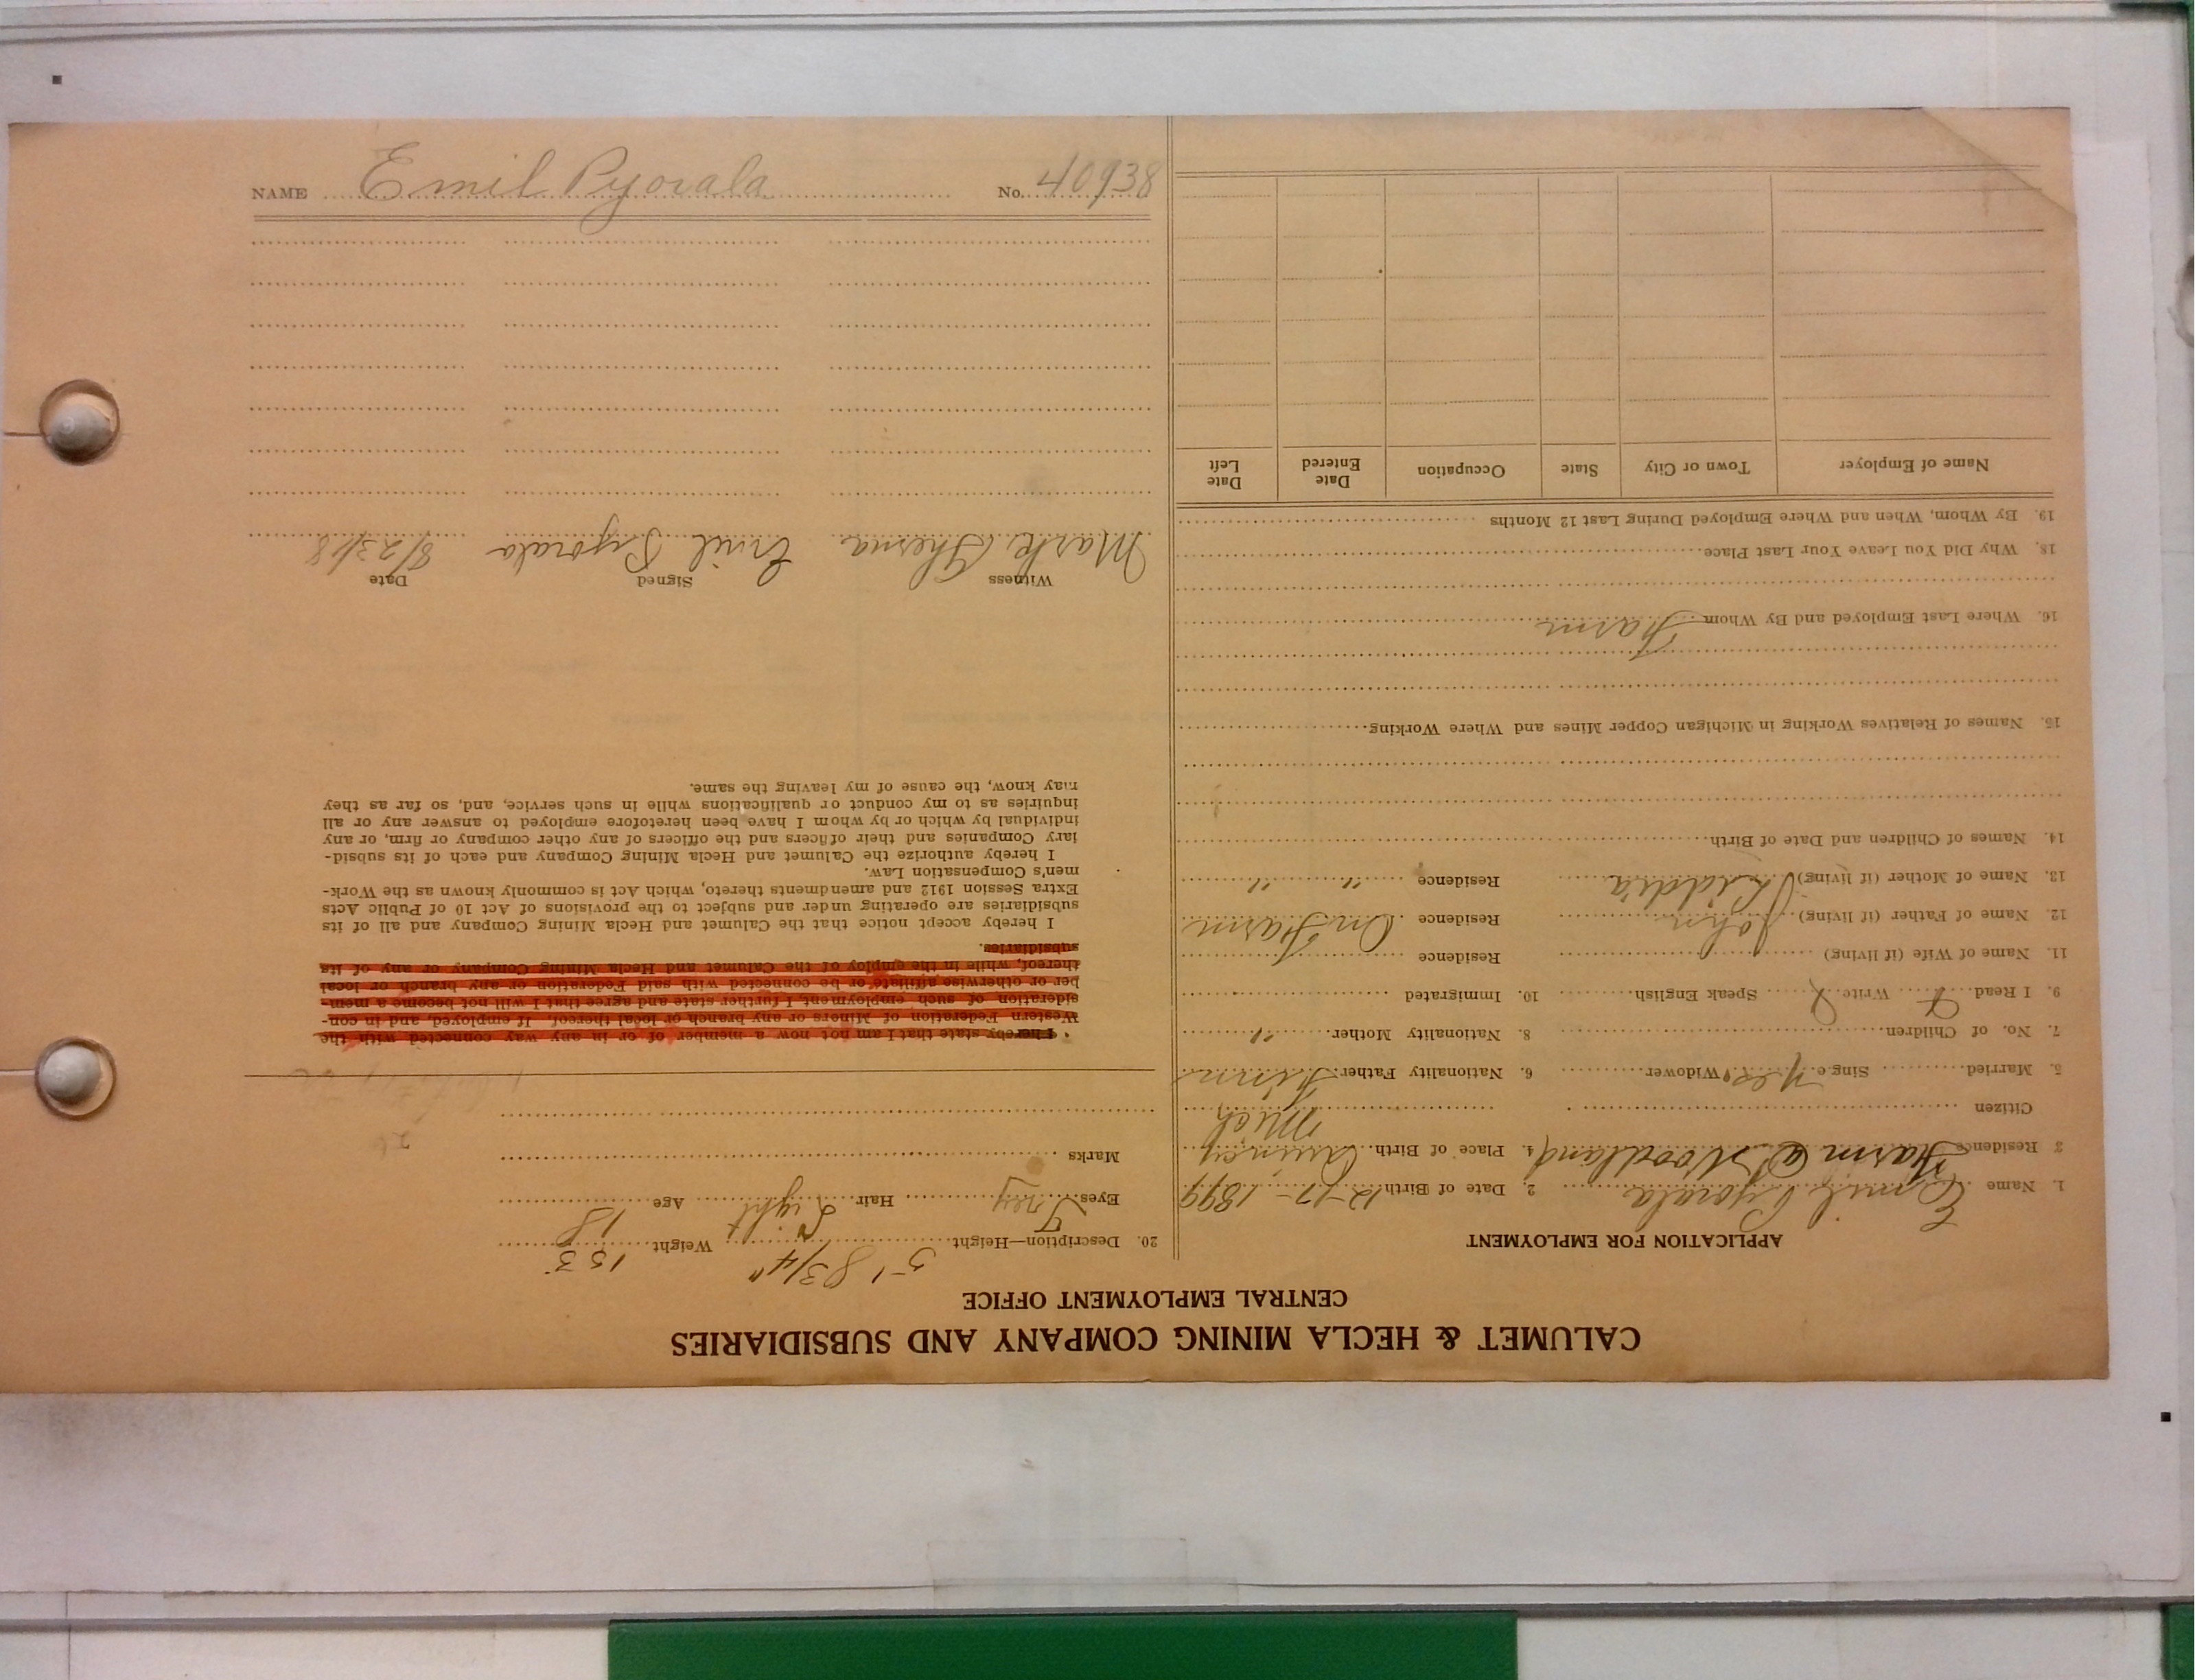 NAME Emil Pyorala No. 40938
CALUMET & HECLA MINING COMPANY AND SUBSIDIARIES
CENTRAL EMPLOYMENT OFFICE
APPLICATION FOR EMPLOYMENT
1. Name Emil Pyorala 2. Date of Birth 12-17-1899
3 Residence Farm @ Woodland 4. Place of Birth Quincy
Mich
Citizen
5. Married Single Yes Widower 6. Nationality Father Finn
7. No. of Children 8. Nationality Mother "
9. I Read Write Speak English 10. Immigrated
11. Name of Wife (if living) Residence
12. Name of Father (if living) John Residence On Farm
13. Name of Mother (if living) Liddia Residence " "
14. Names of Children and Date of Birth
15. Names of Relatives Working in Michigan Copper Mines and Where Working
16. Where Last Employed and By Whom Farm
18. Why Did You Leave Your Last Place
19. By Whom, When and Where Employed During Last 12 Months
Name of Employer Town or City State Occupation Date Entered Date Left
20. Description—Height 5' 8 3/4" Weight 153
Eyes Grey Hair Light Age 18
Marks
I hereby state that I am not now a member of or in any way connected with the
Western Federation of Miners or any branch or local thereof. If employed, and in con-
sideration of such employment, I further state and agree that I will not become a mem-
ber or otherwise affiliate or be connected with said Federation or any branch or local
thereof, while in the employ of the Calumet and Hecla Mining Company or any of its
subsidiaries.
I hereby accept notice that the Calumet and Hecla Mining Company and all of its
subsidiaries are operating under and subject to the provisions of Act 10 of Public Acts
Extra Session 1912 and amendments thereto, which Act is commonly known as the Work-
men's Compensation Law.
I hereby authorize the Calumet and Hecla Mining Company and each of its subsid-
iary Companies and their officers and the officers of any other company or firm, or any
individual by which or by whom I have been heretofore employed to answer any or all
inquiries as to my conduct or qualifications while in such service, and, so far as they
may know, the cause of my leaving the same.
Witness Signed Date
Mark Emil Pyorala 8/23/18